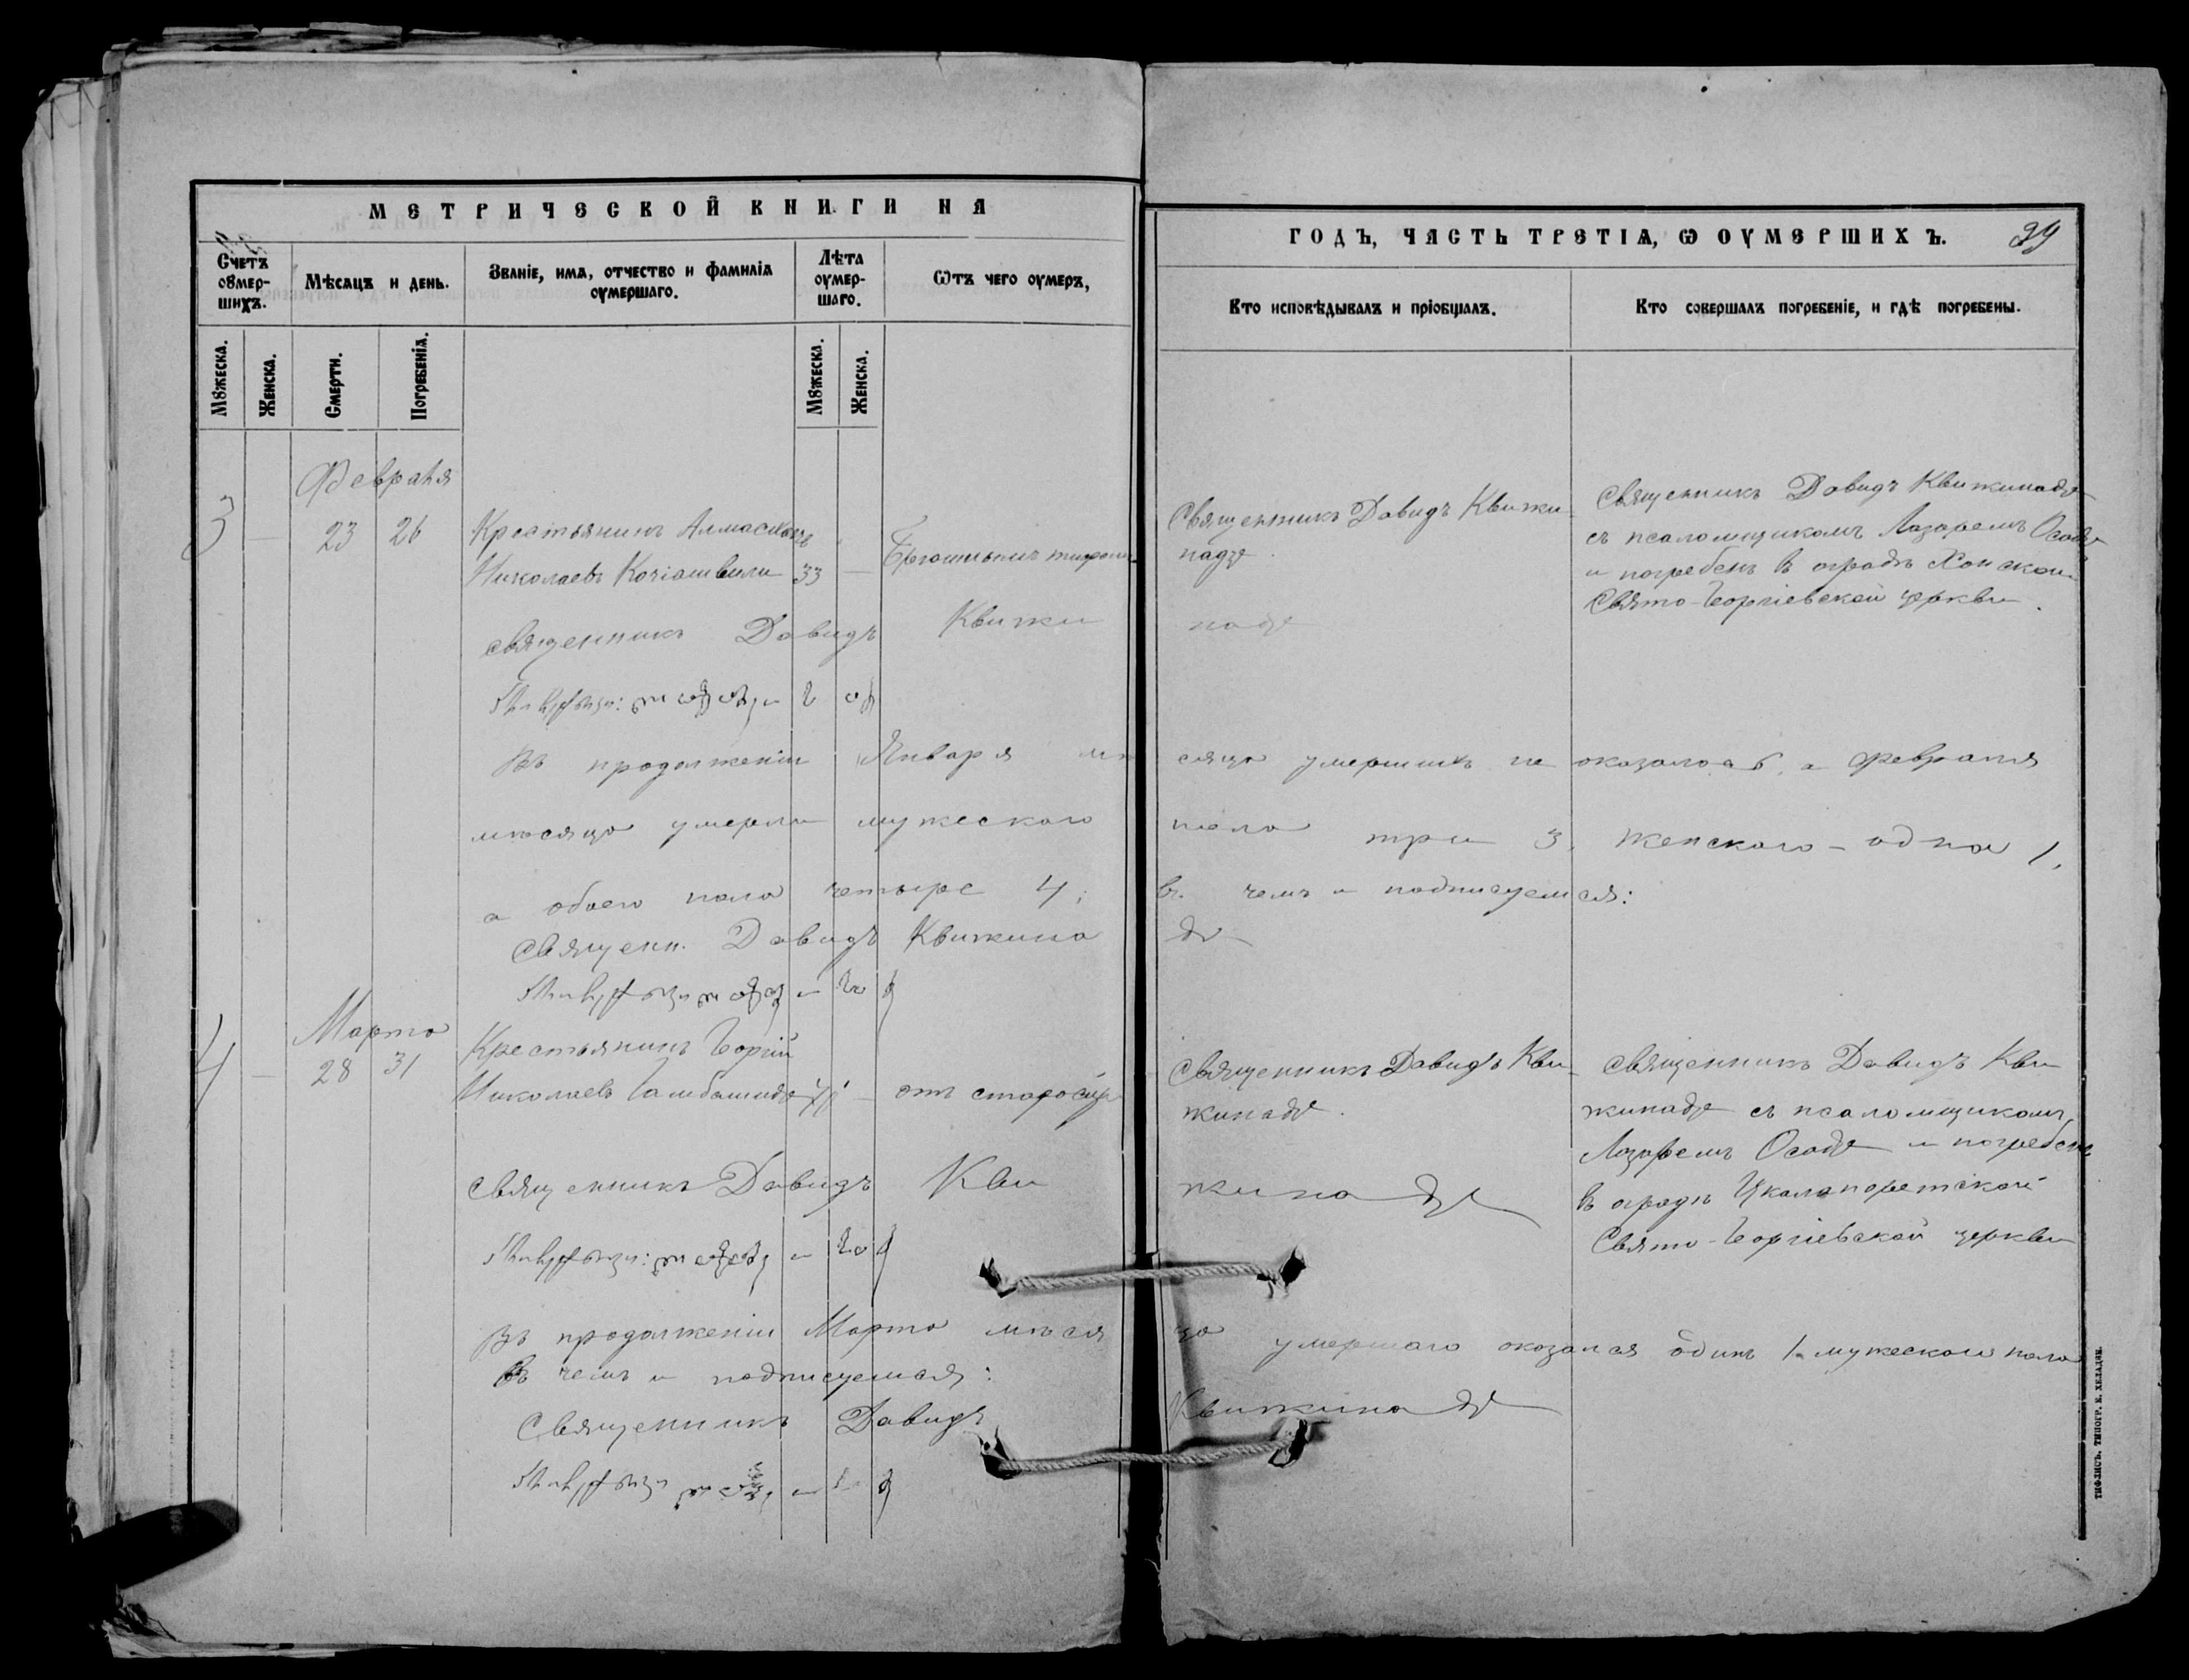 МЕТРИЧЕСКОЙ КНИГИ НА
Счетъ оумершихъ.
Мѣсяцъ и день.
Званіе, имя, отчество и фамилія оумершаго.
Лѣта оумершаго.
Ѿтъ чего оумеръ,
Мꙋжеска.
Женска.
Смерти.
Погребенія.
Мꙋжеска.
Женска.
ГОДЪ, ЧАСТЬ ТРЕТІЯ, Ѡ ОУМЕРШИХЪ. 39
Кто исповѣдывалъ и пріобщалъ.
Кто совершалъ погребеніе, и гдѣ погребены.
Февраля
3 — 23 26 Крестьянинъ
Николаевъ Кочіашвили 33 —
Священникъ Давидъ Квижи
надзе.
Священникъ Давидъ Квижинадзе
съ псаломщикомъ Лазаремъ Осадзе
и погребенъ въ оградѣ
Свято-Георгіевской церкви.
Священникъ Давидъ Квижинадзе
Въ продолженіи Января мѣсяца умершихъ не оказалось, а Февраля
мѣсяца умерли мужескаго пола три 3, женскаго – одна 1,
а обоего пола четыре 4; въ чемъ и подписуемся:
Священ. Давидъ Квижинадзе
Марта
4 — 28 31 Крестьянинъ Георгій
Николаевъ Гамбашидзе — отъ
Священникъ Давидъ Кви
жинадзе.
Священникъ Давидъ Кви
жинадзе съ псаломщикомъ
Лазаремъ Осадзе и погребенъ
въ оградѣ
Свято-Георгіевской церкви
Священникъ Давидъ Квижинадзе
Въ продолженіи Марта мѣсяца умершаго оказался одинъ 1 мужескаго пола
въ чемъ и подписуемся:
Священникъ Давидъ Квижинадзе
ТИФЛИСЪ. ТИПОГР. Е. ХЕЛАДЗЕ.